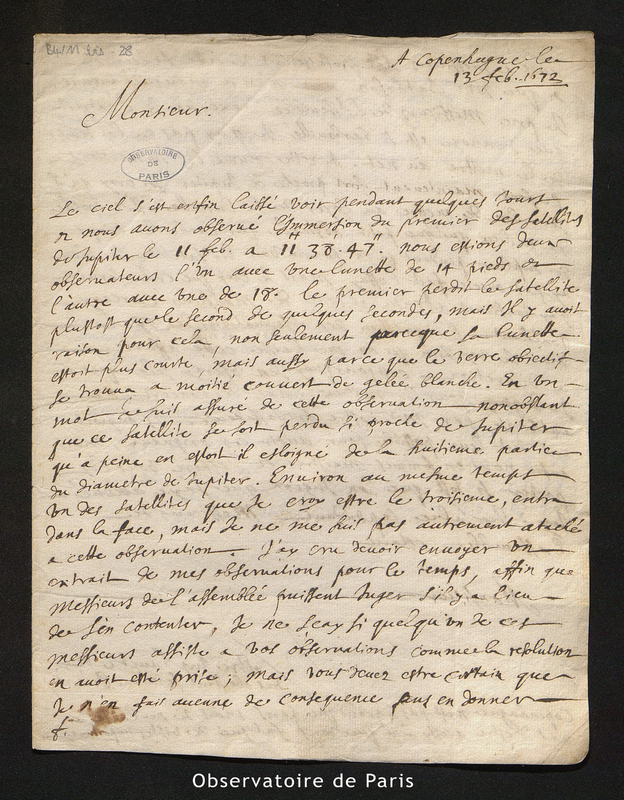 B4/11 bis - 28
A Copenhague le
13 feb. 1672
Monsieur.
OBSERVATOIRE
DE
PARIS
Le ciel s'est enfin laissé voir pendant quelques Jours
et nous avons observé l'Immersion du premier des satellites
de Jupiter le 11 feb. a 11H 38' 47". nous estions deux
observateurs l'Vn avec vne lunette de 14 pieds et
l'autre avec vne de 18. le premier perdit le satellite
plustost que le second de quelques secondes, mais Il y avoit
raison pour cela, non seulement parceque sa lunette
estoit plus courte, mais aussy parce que le verre obiectif
se trouva a moitié couvert de gelée blanche. En vn
mot Je suis assuré de cette observation nonobstant
que ce satellite se soit perdu si proche de Jupiter
qu'a peine en estoit il esloigné de la huitieme partie
du diametre de Jupiter. Environ au mesme temps
Vn des satellites que Je croy estre le troisieme, entra
dans la face, mais Je ne me suis pas autrement ataché
a cette observation. J'ay cru devoir envoyer Vn
extrait de mes observations pour le temps, affin que
Messieurs de l'assemblée puissent Juger s'il y a lieu
de s'en contenter, Je ne scay si quelqu'vn de ces
messieurs assiste a vos observations comme la resolution
en avoit esté prise; mais vous devez estre certain que
Je n'en fais aucune de consequence sans en donner
Observatoire de Paris